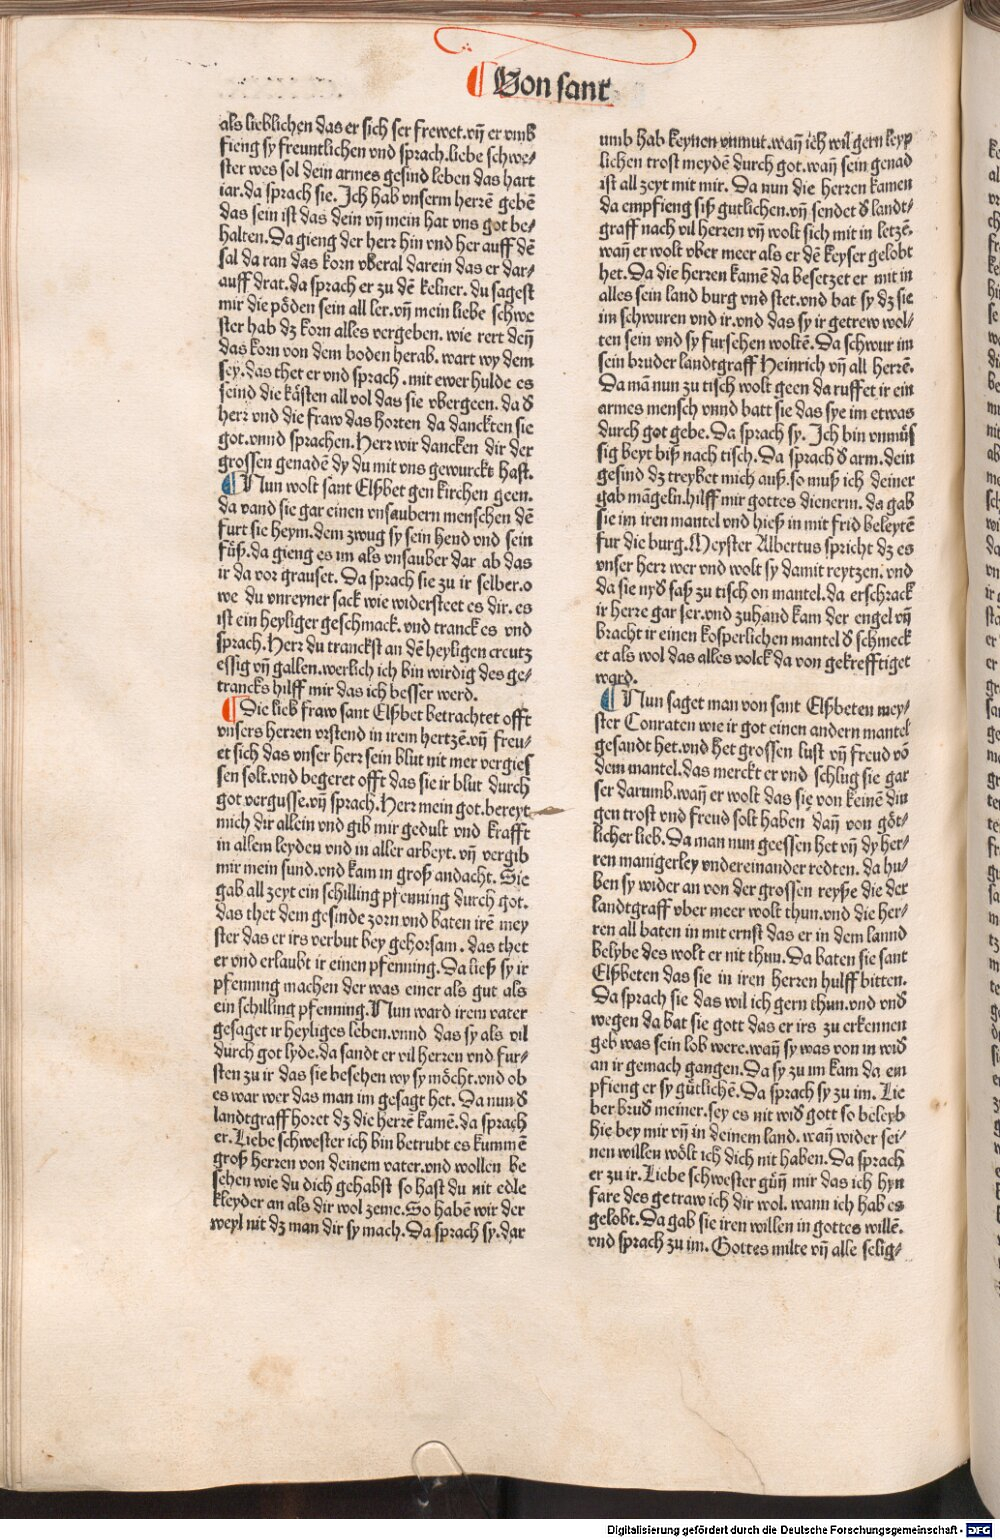 Von sant
als lieblichen das er sich ser frewet.vñ er vmb
fieng sy freuntlichen vnd sprach.liebe schwe-
ster wes sol dein armes gesind leben das hart
iar.da sprach sie. Ich hab vnserm herrē gebē
das sein ist das dein vñ mein hat vns got be-
halten.Da gieng der herr hin vnd her auff dē
sal da ran das korn vberal darein das er dar-
auff drat.da sprach er zu dē kelner. du sagest
mir die pöden sein all ler.vñ mein liebe schwe
ster hab dz korn alles vergeben. wie rert deñ
das korn von dem boden herab. wart wy dem
sey.das thet er vnd sprach.mit ewer hulde es
seind die kästen all vol das sie vbergeen. da d̄
herr vnd die fraw das horten da danckten sie
got.vnnd sprachen.Herr wir dancken dir der
grossen genadē dy du mit vns gewurckt hast.
¶ Nun wolt sant Elßbet gen kirchen geen.
da vand sie gar einen vnsaubern menschen dē
furt sie heym.dem zwug sy sein hend vnd sein
füß.da gieng es im als vnsauber dar ab das
ir da vor grauset. Da sprach sie zu ir selber.o
we du vnreyner sack wie widersteet es dir. es
ist ein heyliger geschmack. vnd tranck es vnd
sprach.Herr du tranckst an dē heyligen creutz
essig vñ gallen.werlich ich bin wirdig des ge-
trancks hilff mir das ich besser werd.
¶ Die lieb fraw sant Elßbet betrachtet offt
vnsers herren vrstend in irem hertzē.vñ freu-
et sich das vnser herr sein blut nit mer vergies
sen solt.vnd begeret offt das sie ir blut durch
got vergusse.vñ sprach.Herr mein got.bereyt
mich dir allein vnd gib mir gedult vnd krafft
in allem leyden vnd in aller arbeyt. vñ vergib
mir mein sund.vnd kam in groß andacht. Sie
gab all zeyt ein schilling pfenning durch got.
das thet dem gesinde zorn vnd baten irē mey
ster das er irs verbut bey gehorsam. das thet
er vnd erlaubt ir einen pfenning.Da ließ sy ir
pfenning machen der was einer als gut als
ein schilling pfenning.Nun ward irem vater
gesaget ir heyliges leben.vnnd das sy als vil
durch got lyde.da sandt er vil herren vnd fur-
sten zu ir das sie besehen wy sy möcht.vnd ob
es war wer das man im gesagt het. Da nun d̄
landtgraff horet dz die herrē kamē.da sprach
er.Liebe schwester ich bin betrubt es kummē
groß herren von deinem vater.vnd wollen be
sehen wie du dich gehabst so hast du nit edle
kleyder an als dir wol zeme.So habē wir der
weyl nit dz man dir sy mach.Da sprach sy.dar
umb hab keynen vnmut.wañ ich wil gern leyp
lichen trost meydē durch got.wañ sein genad
ist all zeyt mit mir. Da nun die herren kamen
da empfieng siß gutlichen.vñ sendet d̄ landt-
graff nach vil herren vñ wolt sich mit in letzē.
wañ er wolt vber meer als er dē keyser gelobt
het.Da die herren kamē da besetzet er mit in
alles sein land burg vnd stet.vnd bat sy dz sie
im schwuren vnd ir.vnd das sy ir getrew wel-
ten sein vnd sy fursehen woltē.Da schwur im
sein bruder landtgraff Heinrich vñ all herrē.
Da mā nun zu tisch wolt geen da ruffet ir ein
armes mensch vnnd batt sie das sye im etwas
durch got gebe.Da sprach sy. Ich bin vnmüs
sig beyt biß nach tisch.Da sprach d̄ arm.dein
gesind dz treybet mich auß.so muß ich deiner
gab māgeln.hilff mir gottes dienerin. da gab
sie im iren mantel vnd hieß in mit frid beleytē
fur die burg.Meyster Albertus spricht dz es
vnser herr wer vnd wolt sy damit reytzen. vnd
da sie nyd̄ saß zu tisch on mantel.da erschrack
ir herre gar ser.vnd zuhand kam der engel vñ
bracht ir einen kosperlichen mantel d̄ schmeck
et als wol das alles volck da von gekrefftiget
ward.
¶ Nun saget man von sant Elßbeten mey-
ster Conraten wie ir got einen andern mantel
gesandt het.vnd het grossen lust vñ freud vō
dem mantel.das merckt er vnd schlug sie gar
ser darumb.wañ er wolt das sie von keinē din
gen trost vnd freud solt haben dañ von göt-
licher lieb.Da man nun geessen het vñ dy her-
ren manigerley vndereinander redten. da hu-
ben sy wider an von der grossen reyße die der
landtgraff vber meer wolt thun.vnd die her-
ren all baten in mit ernst das er in dem lannd
belybe des wolt er nit thun.Da baten sie sant
Elßbeten das sie in iren herren hulff bitten.
Da sprach sie das wil ich gern thun.vnd vnd̄
wegen da bat sie gott das er irs zu erkennen
geb was sein lob were.wañ sy was von in wid̄
an ir gemach gangen.Da sy zu im kam da em
pfieng er sy gütlichē.Da sprach sy zu im. Lie
ber brud̄ meiner.sey es nit wid̄ gott so beleyb
hie bey mir vñ in deinem land. wañ wider sei-
nen willen wölt ich dich nit haben.Da sprach
er zu ir.Liebe schwester güñ mir das ich hyn
fare des getraw ich dir wol. wann ich hab es
gelobt.Da gab sie iren willen in gottes willē.
vnd sprach zu im.Gottes milte vñ alle selig-
Digitalisierung gefördert durch die Deutsche Forschungsgemeinschaft - DFG